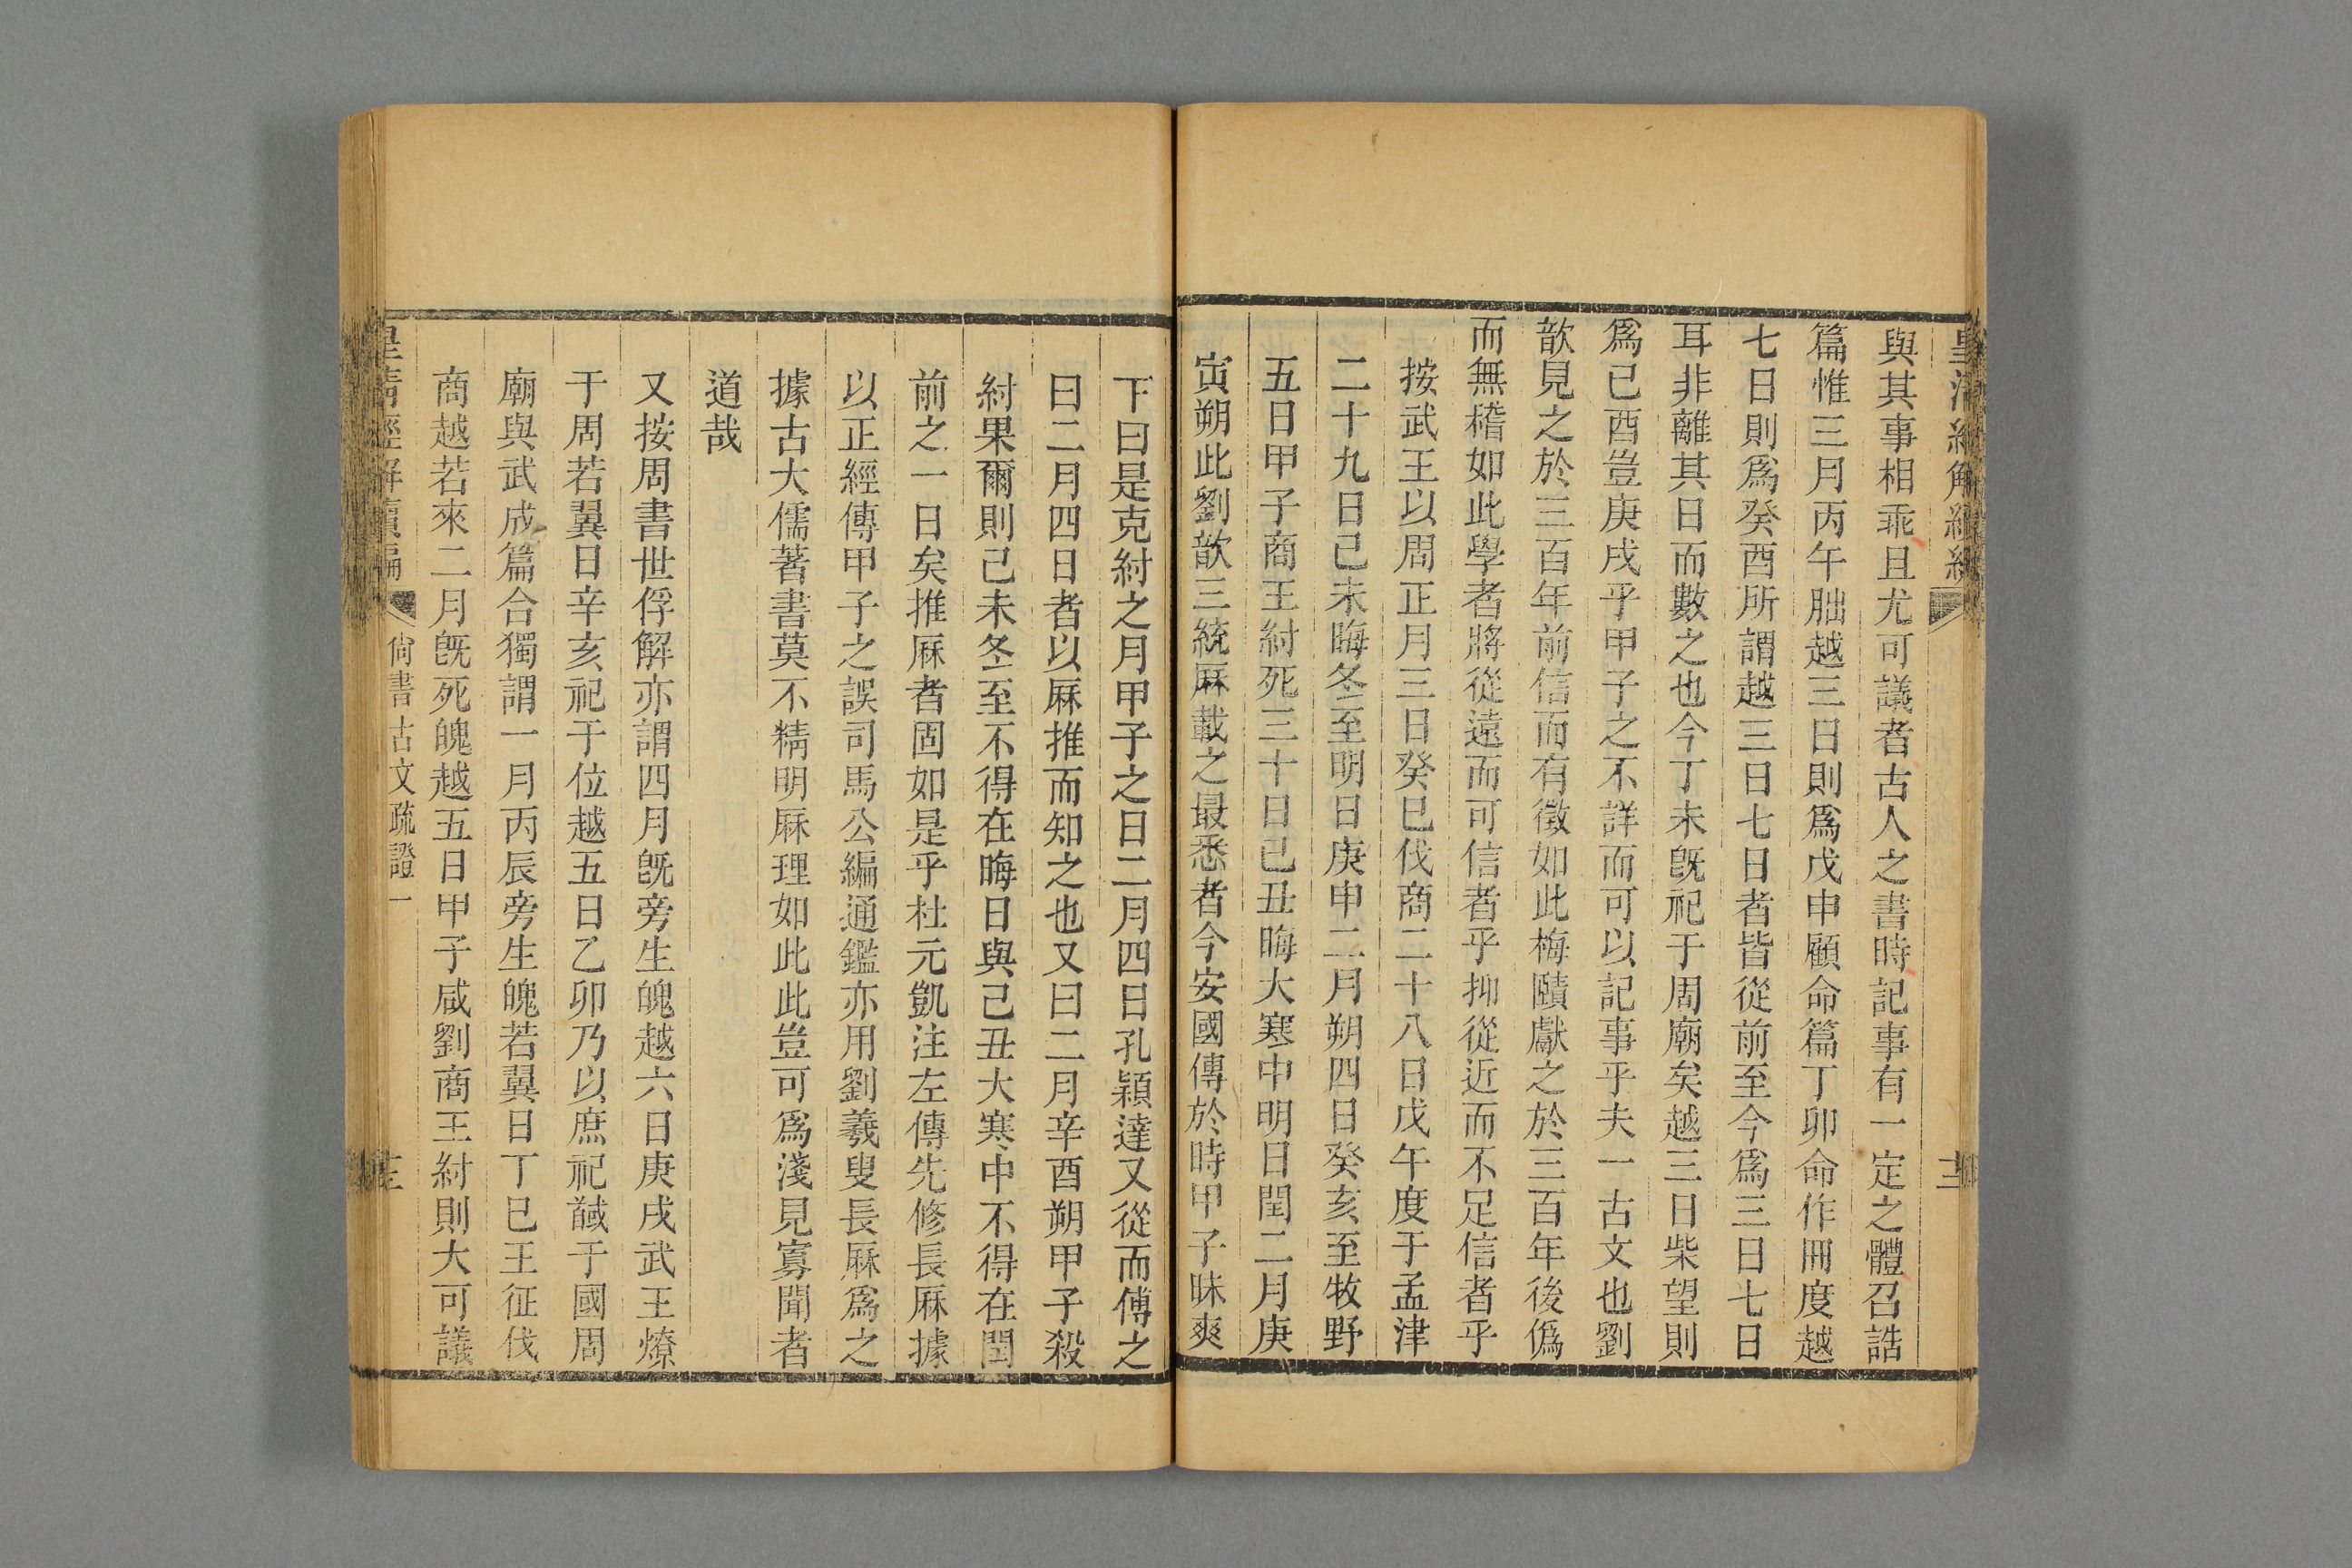 皇清經解續編
十二
與其事相乖且尤可議者古人之書時記事有一定之體召誥
篇惟三月丙午朏越三日則爲戊申顧命篇丁卯命作冊度越
七日則爲癸酉所謂越三日七日者皆從前至今爲三日七日
耳非離其日而數之也今丁未旣祀于周廟矣越三日柴望則
爲己酉豈庚戌乎甲子之不詳而可以記事乎夫一古文也劉
歆見之於三百年前信而有徵如此梅賾獻之於三百年後僞
而無稽如此學者將從遠而可信者乎抑從近而不足信者乎
按武王以周正月三日癸巳伐商二十八日戊午度于孟津
二十九日己未晦冬至明日庚申二月朔四日癸亥至牧野
五日甲子商王紂死三十日己丑晦大寒中明日閏二月庚
寅朔此劉歆三統厤載之最悉者今安國傳於時甲子昧爽
下曰是克紂之月甲子之日二月四日孔穎達又從而傅之
曰二月四日者以厤推而知之也又曰二月辛酉朔甲子殺
紂果爾則己未冬至不得在晦日與己丑大寒中不得在閏
前之一日矣推厤者固如是乎杜元凱注左傳先修長厤據
以正經傳甲子之誤司馬公編通鑑亦用劉羲叟長厤爲之
據古大儒著書莫不精明厤理如此此豈可爲淺見寡聞者
道哉
又按周書世俘解亦謂四月旣旁生魄越六日庚戌武王燎
于周若翼日辛亥祀于位越五日乙卯乃以庶祀馘于國周
廟與武成篇合獨謂一月丙辰旁生魄若翼日丁巳王征伐
商越若來二月旣死魄越五日甲子咸劉商王紂則大可議
皇清經解續編
尙書古文疏證一